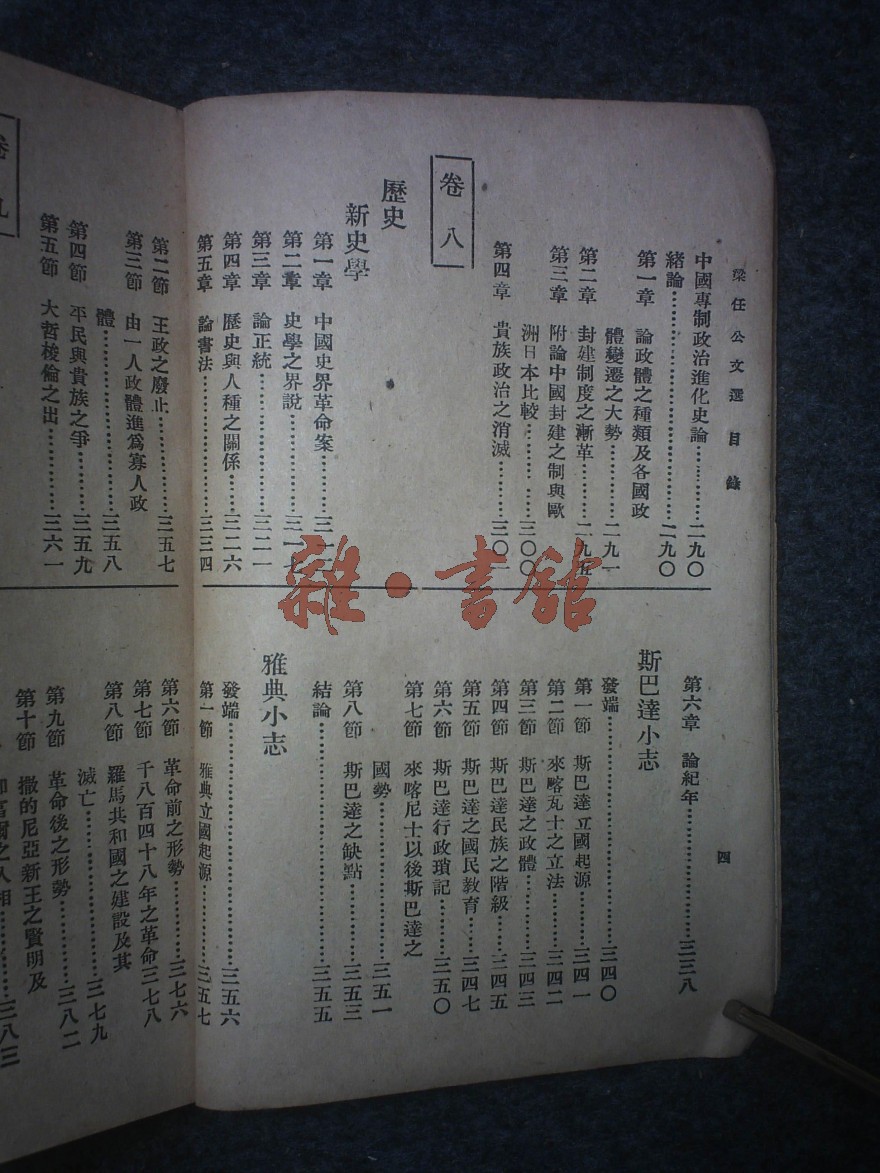 梁任公文選 目錄
四
中國專制政治進化史論……二九〇
緒論……二九〇
第一章 論政體之種類及各國政
體變遷之大勢……二九一
第二章 封建制度之漸革……二九五
第三章 附論中國封建之制與歐
洲日本比較……三〇〇
第四章 貴族政治之消滅……三〇
卷八
歷史
新史學
第一章 中國史界革命案……三一
第二章 史學之界說……三一
第三章 論正統……三二一
第四章 歷史與人種之關係……三二六
第五章 論書法……三三四
第六章 論紀年……三三八
斯巴達小志
發端……三四〇
第一節 斯巴達立國起源……三四一
第二節 來喀瓦士之立法……三四二
第三節 斯巴達之政體……三四三
第四節 斯巴達民族之階級……三四五
第五節 斯巴達之國民教育……三四七
第六節 斯巴達行政瑣記……三五〇
第七節 來喀尼士以後斯巴達之
國勢……三五一
第八節 斯巴達之缺點……三五三
結論……三五五
雅典小志
發端……三五六
第一節 雅典立國起源……三五七
第二節 王政之廢止……三五七
第三節 由一人政體進爲寡人政
體……三五八
第四節 平民與貴族之爭……三五九
第五節 大哲梭倫之出……三六一
卷九
第六節 革命前之形勢……三七六
第七節 千八百四十八年之革命三七八
第八節 羅馬共和國之建設及其
滅亡……三七九
第九節 革命後之形勢……三八二
第十節 撒的尼亞新王之賢明及
爾之入相……三八三
雜·書舘